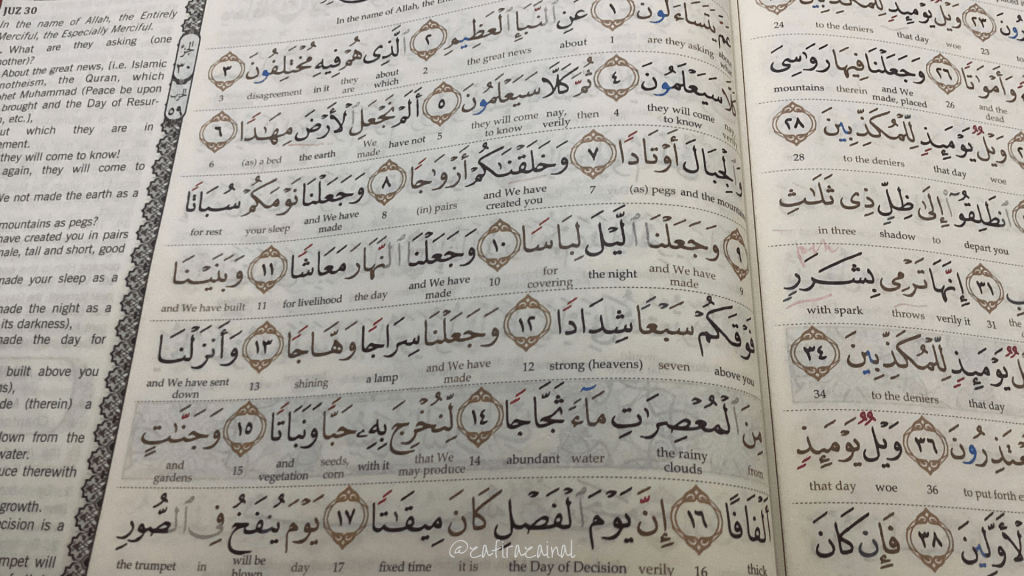 JUZ 30
In the name of Allah, the Entirely
Merciful, the Especially Merciful.
What are they asking (one
About the great news, (i.e. Islamic
notheism, the Quran, which
het Muhammad (Peace be upon
brought and the Day of Resur-
n, etc.),
ut which they are in
they will come to know!
again, they will come to
We not made the earth as a
mountains as pegs?
have created you in pairs
ale, tall and short, good
made your sleep as a
made the night as a
its darkness),
made the day for
built above you
de (therein) a
down from the
water.
uce therewith
growth.
cision is a
mpet will
In the name of Allah, the
يَتَسَآءَلُونَ ١ عَنِ ٱلنَّبَإِ ٱلْعَظِيمِ ٢ ٱلَّذِى هُمْ فِيهِ مُخْتَلِفُونَ ٣
are they asking 1 about the great news 2 about which they in it disagreement 3
كَلَّا سَيَعْلَمُونَ ٤ ثُمَّ كَلَّا سَيَعْلَمُونَ ٥ أَلَمْ نَجْعَلِ ٱلْأَرْضَ مِهَٰدًا ٦
nay, they will come to know 4 then verily nay, they will come to know 5 have not We made the earth (as) a bed 6
وَٱلْجِبَالَ أَوْتَادًا ٧ وَخَلَقْنَٰكُمْ أَزْوَٰجًا ٨ وَجَعَلْنَا نَوْمَكُمْ سُبَاتًا
and the (as) pegs 7 and We have created you (in) pairs 8 and We have made your sleep for rest
٩ وَجَعَلْنَا ٱلَّيْلَ لِبَاسًا ١٠ وَجَعَلْنَا ٱلنَّهَارَ مَعَاشًا ١١ وَبَنَيْنَا
9 and We have made the night for covering 10 and We have made the day for livelihood 11 and We have built
فَوْقَكُمْ سَبْعًا شِدَادًا ١٢ وَجَعَلْنَا سِرَاجًا وَهَّاجًا ١٣ وَأَنزَلْنَا
above you seven strong (heavens) 12 and We have made a lamp shining 13 and We have sent down
مِنَ ٱلْمُعْصِرَٰتِ مَآءً ثَجَّاجًا ١٤ لِّنُخْرِجَ بِهِۦ حَبًّا وَنَبَاتًا ١٥ وَجَنَّٰتٍ
from the rainy clouds water abundant 14 that We may produce with it seeds, corn and vegetation 15 and gardens
أَلْفَافًا ١٦ إِنَّ يَوْمَ ٱلْفَصْلِ كَانَ مِيقَٰتًا ١٧ يَوْمَ يُنفَخُ فِى ٱلصُّورِ
thick 16 verily the Day of Decision it is fixed time 17 day will be blown in the trumpet
@zafirazainal
٢٣ وَيْلٌ يَوْمَئِذٍ لِّلْمُكَذِّبِينَ
23 woe that day to the deniers 24
وَأَمْوَٰتًا ٢٦ وَجَعَلْنَا فِيهَا رَوَٰسِىَ
and the dead 26 and We made, placed therein mountains
وَيْلٌ يَوْمَئِذٍ لِّلْمُكَذِّبِينَ ٢٨
woe that day to the deniers 28
ٱنطَلِقُوٓا۟ إِلَىٰ ظِلٍّ ذِى ثَلَٰثِ
depart you to shadow in three
٣١ إِنَّهَا تَرْمِى بِشَرَرٍ
31 verily it throws with spark
يَوْمَئِذٍ لِّلْمُكَذِّبِينَ ٣٤
that day to the deniers 34
٣٦ وَيْلٌ يَوْمَئِذٍ
to put forth 36 woe that day
ٱلْأَوَّلِينَ ٣٨ فَإِن كَانَ